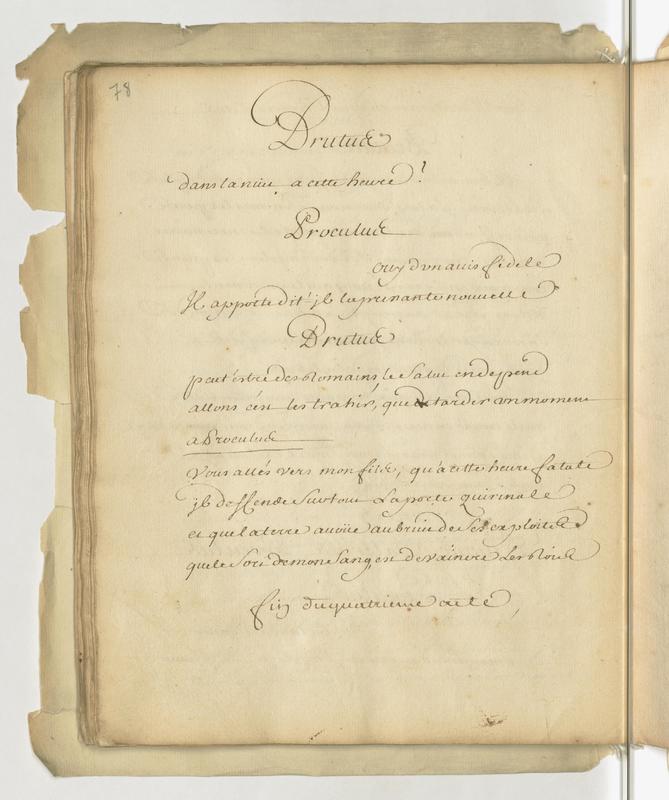 78
Brutus
dans la nuit, a cette heure ?
Proculus
ouy d'vn auis fidele
Jl apporte dit il la presante nouvelle
Brutus
peut estre des Romains le salut en depend
allons c'est les trahir, que de tarder vn moment
a Proculus
Vous allés vers mon fils, qu'a cette heure fatale
jl deffende surtout La porte quirinale
et que la terre auoüe au bruit de ses exploits
que le sort de mon sang, est de vaincre Les Rois
fin du quatrieme acte,